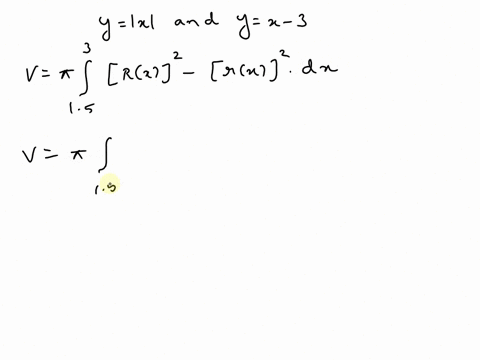 y = |x| and y = x - 3
V = π ∫_{1.5}^{3} [R(x)]² - [r(x)]² . dx
V = π ∫_{1.5}